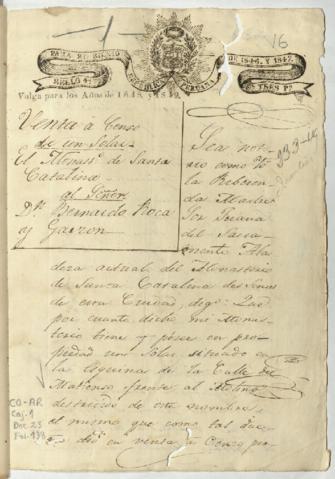 1
16
PARA EL BIENIO
DE 1846. Y 1847.
SELLO 4º
REPUBLICA PERUANA
UN TRES PS
Valga para los Años de 1848, y 1849.
Venta à Censo
de un Solar
El Monastº de Santa
Catalina
al Señor
Dn Bernardo Roca
y Garzon
Sea noto
rio como Yo
la Reberen
da Madre
Sor
del Sacra
mento Aba
desa actual del Monasterio
de Santa Catalina de Sena
de esta Ciudad, digo: Que
por cuanto dicho mi Monas
terio tiene y posee en pro
piedad un Solar, situado en
la Esquina de la Calle del
frente al Molino
destruido de este nombre,
el mismo que como tal due
ño dió en venta à Censo por
CO-AR
Caj. 1
Doc. 25
Fol. 133